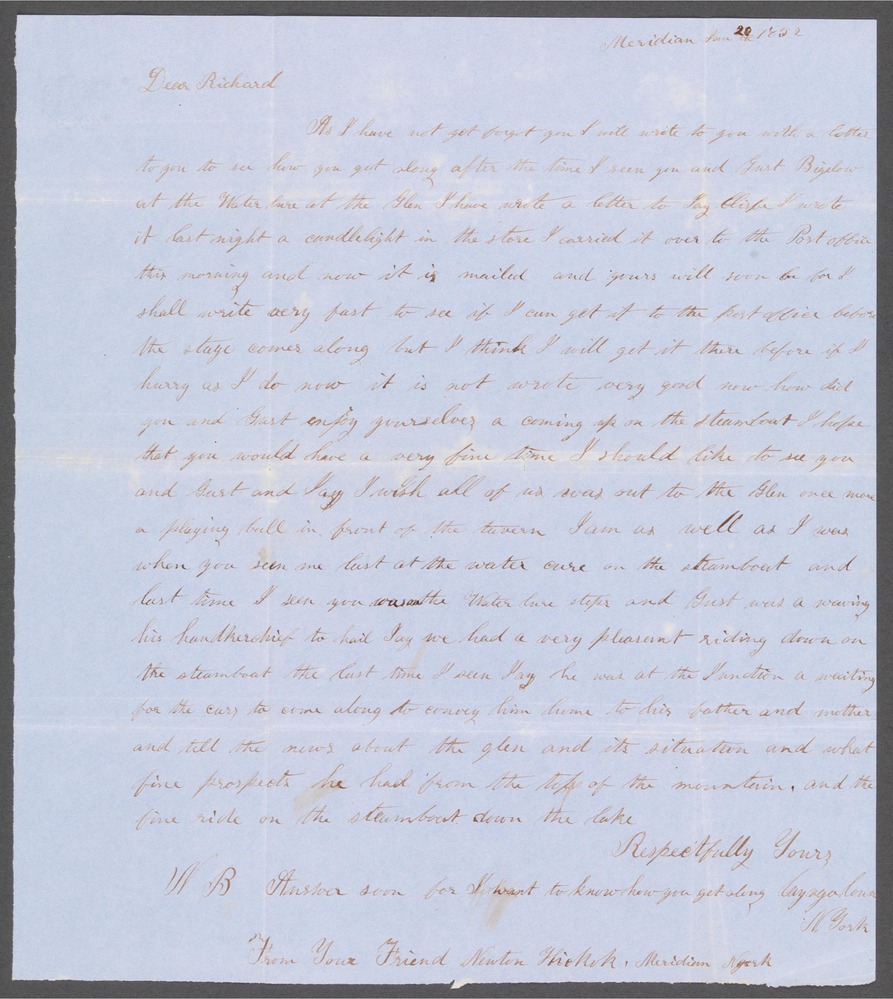 Meridian 20 1852
Dear Richard
As I have not got forgot you I will write to you with a letter
to you to see how you get along after the time I seen you and Gust Bigelow
at the Water Cure at the Glen I have wrote a letter to Jay I wrote
it last night a candlelight in the store I carried it over to the Post office
this morning and now it is mailed and yours will soon be for I
shall write very fast to see if I can get it to the post office before
the stage comes along but I think I will get it there before if I
hurry as I do now it is not wrote very good now how did
you and Gust enjoy yourselves a coming up on the steamboat I hope
that you would have a very fine time I should like to see you
and Gust and Jay I wish all of us was out to the Glen once more
a playing ball in front of the tavern I am as well as I was
when you seen me last at the water cure on the steamboat and
last time I seen you was on the Water Cure steps and Gust was a waving
his handkerchief to hail Jay we had a very pleasant riding down on
the steamboat the last time I seen Jay he was at the Junction a waiting
for the cars to come along to convey him home to his father and mother
and tell the news about the glen and its situation and what
fine prospects he had from the top of the mountain, and the
fine ride on the steamboat down the lake
Respectfully Yours
N B Answer soon for I want to know how you get along Cayuga
N York
From Your Friend Newton Hickok. Meridian N york